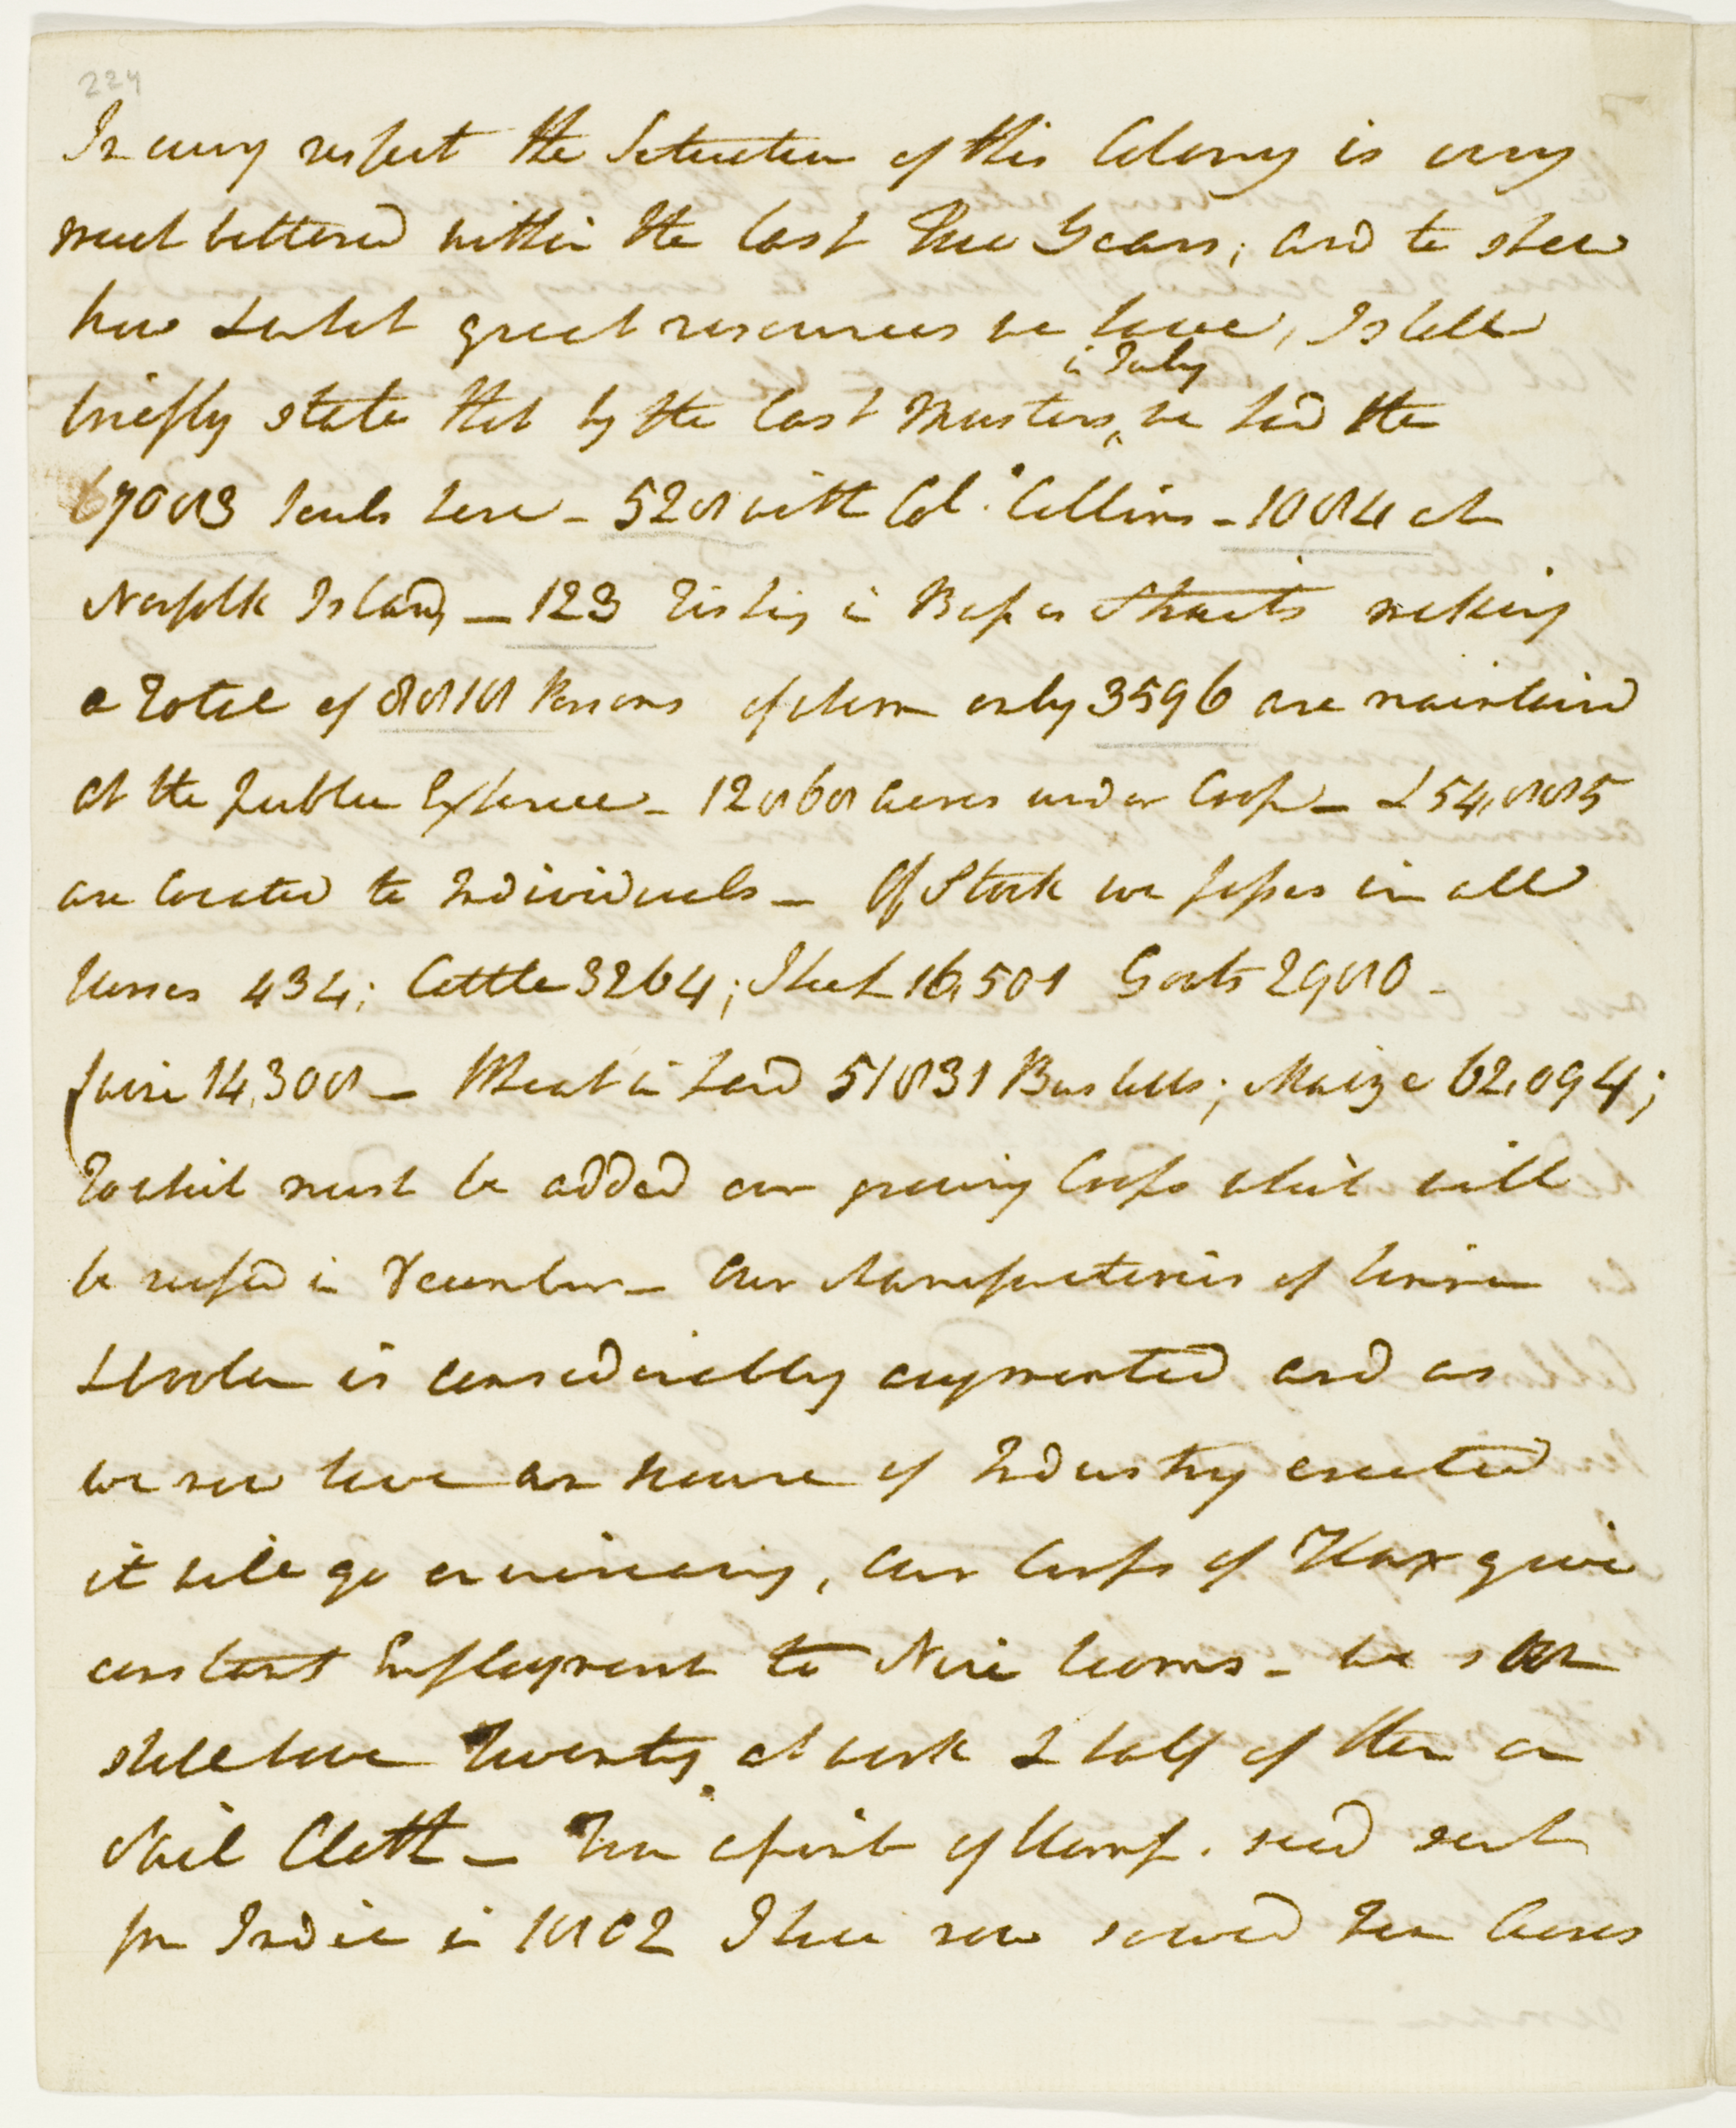 224
In every respect the Situation of this Colony is very
much bettered within the last Three Years; and to shew
how & what great resources we have, I shall
briefly state that by the last Musters in July we had the
7083 souls here - 528 with Col. Collins - 1084 at
Norfolk Island - 123 Fishing in Basses Straits making
a Total of 8818 Persons of whom only 3596 are maintaind
at the public Expence - 12868 acres under Crop - & 54,885
are located to Individuals - Of Stock we posses in all
Horses 434; Cattle 3264; Sheep 16,501 Goats 2980 -
Swine 14,308 - Wheat in hand 51831 Bushells; Maize 62,094;
To which must be added our growing Crops which will
be reaped in December - Our Manufactories of Linnen
& Woolen is considerably augmented and as
we now have an house of Industry erected
it will go on increasing, Our Crops of Flax give
constant Employment to Nine looms - We soon
shall have Twenty at work & half of them on
Sail Cloth - From a pint of Hemp . seed sent
from India in 1802 I have now sowed Ten Acres